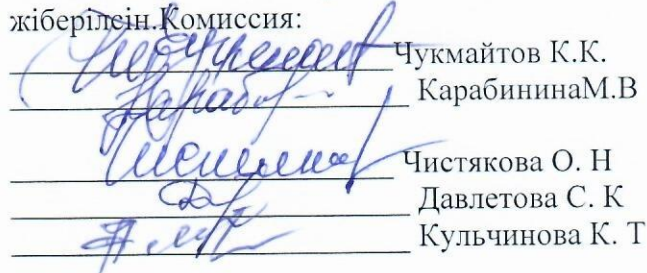 жіберілсін.Комиссия:
Чукмайтов К.К.
КарабининаМ.В
Чистякова О. Н
Давлетова С. К
Кульчинова К. Т